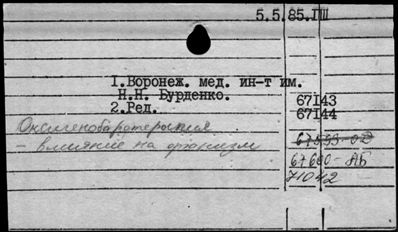 5.5.85.ГШ
I.Воронеж. мед. ин-т им.
Н.Н. Бурденко.
67143
2.Ред.
67144
Оксигенобаротерапия
67599-ОД
- влияние на организм
67600-АБ
71042